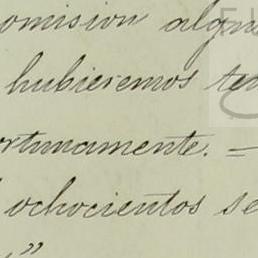 omision algu
hubieremos te
ortunamente. =
ochocientos se
"